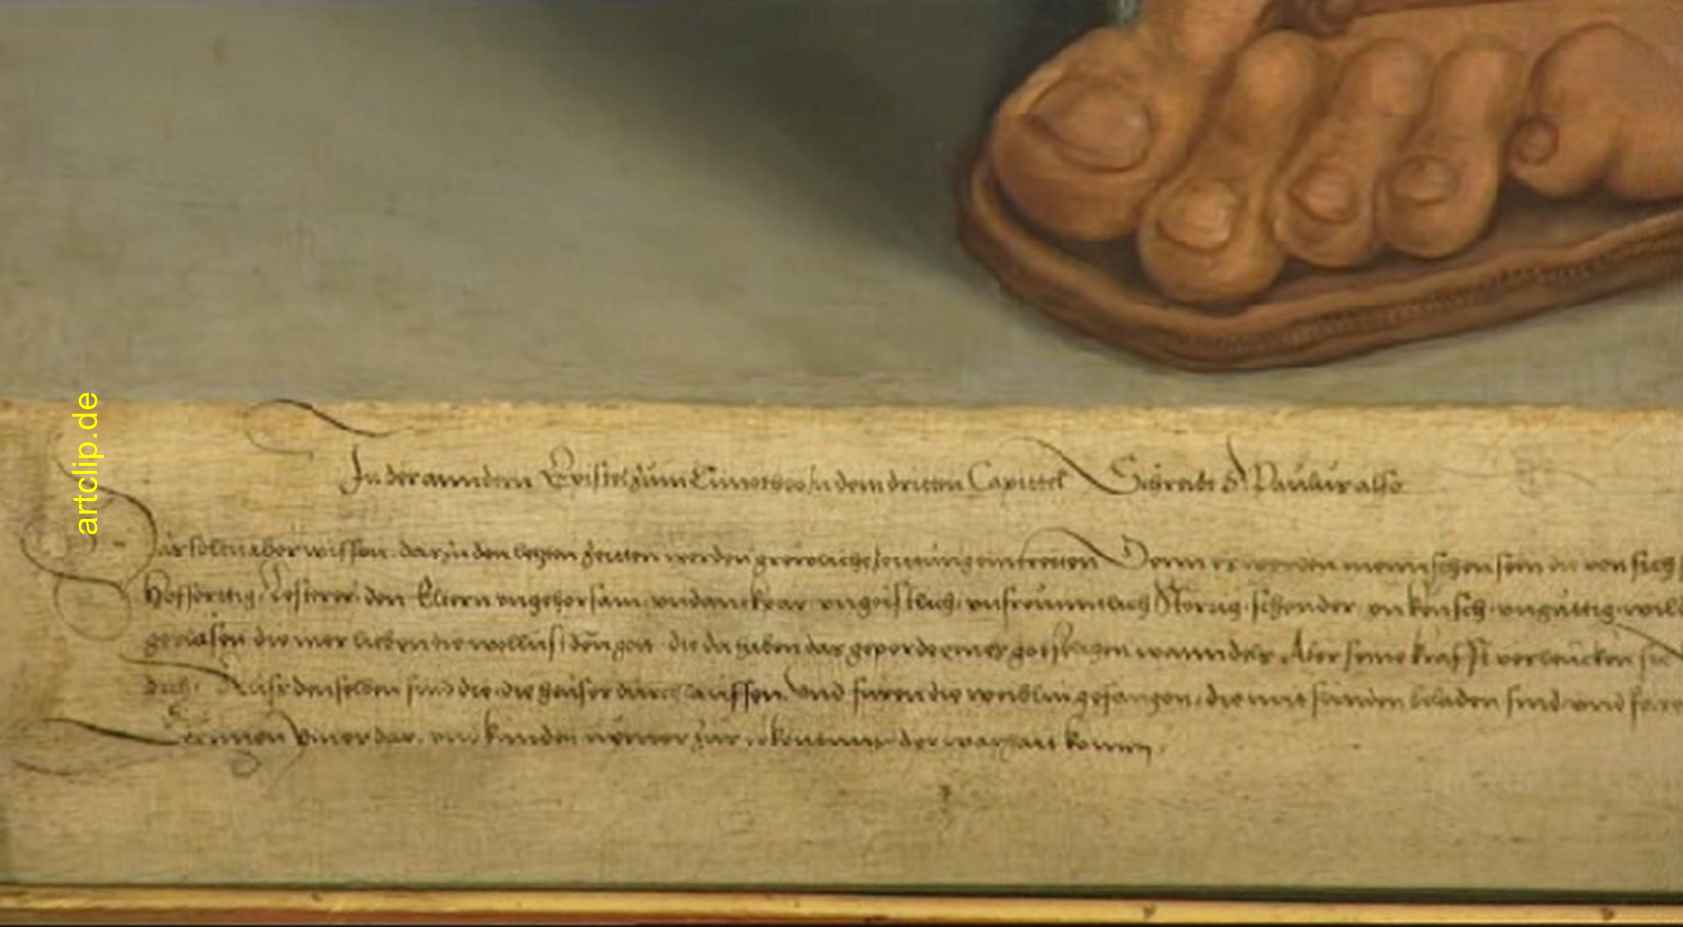 artclip.de
In der anndern Epistel zum Timotheo in dem dritten Capittel Schreibt S Paulus also
Das solt aber wissen das zu den letzten zeiten werden grewliche zeit eintretten Denn es werden mennschen sein die von sich
Hoffertig Lesterer den Eltern ungehorsam undanckbar ungeistlich unfreuntlich Störrig schender unkeusch ungüttig wild
die mer lieben die wollust den got die da haben das geperde eines gotseligen wanndels Aber seine krafft verleucken sie
Aus denselben sind die die heuser durchlauffen Und füren die weiblin gefangen die mit sunden beladen sind und faren
Lernnen Ymerdar und kunden nymer zur erkenntnus der warhait komen